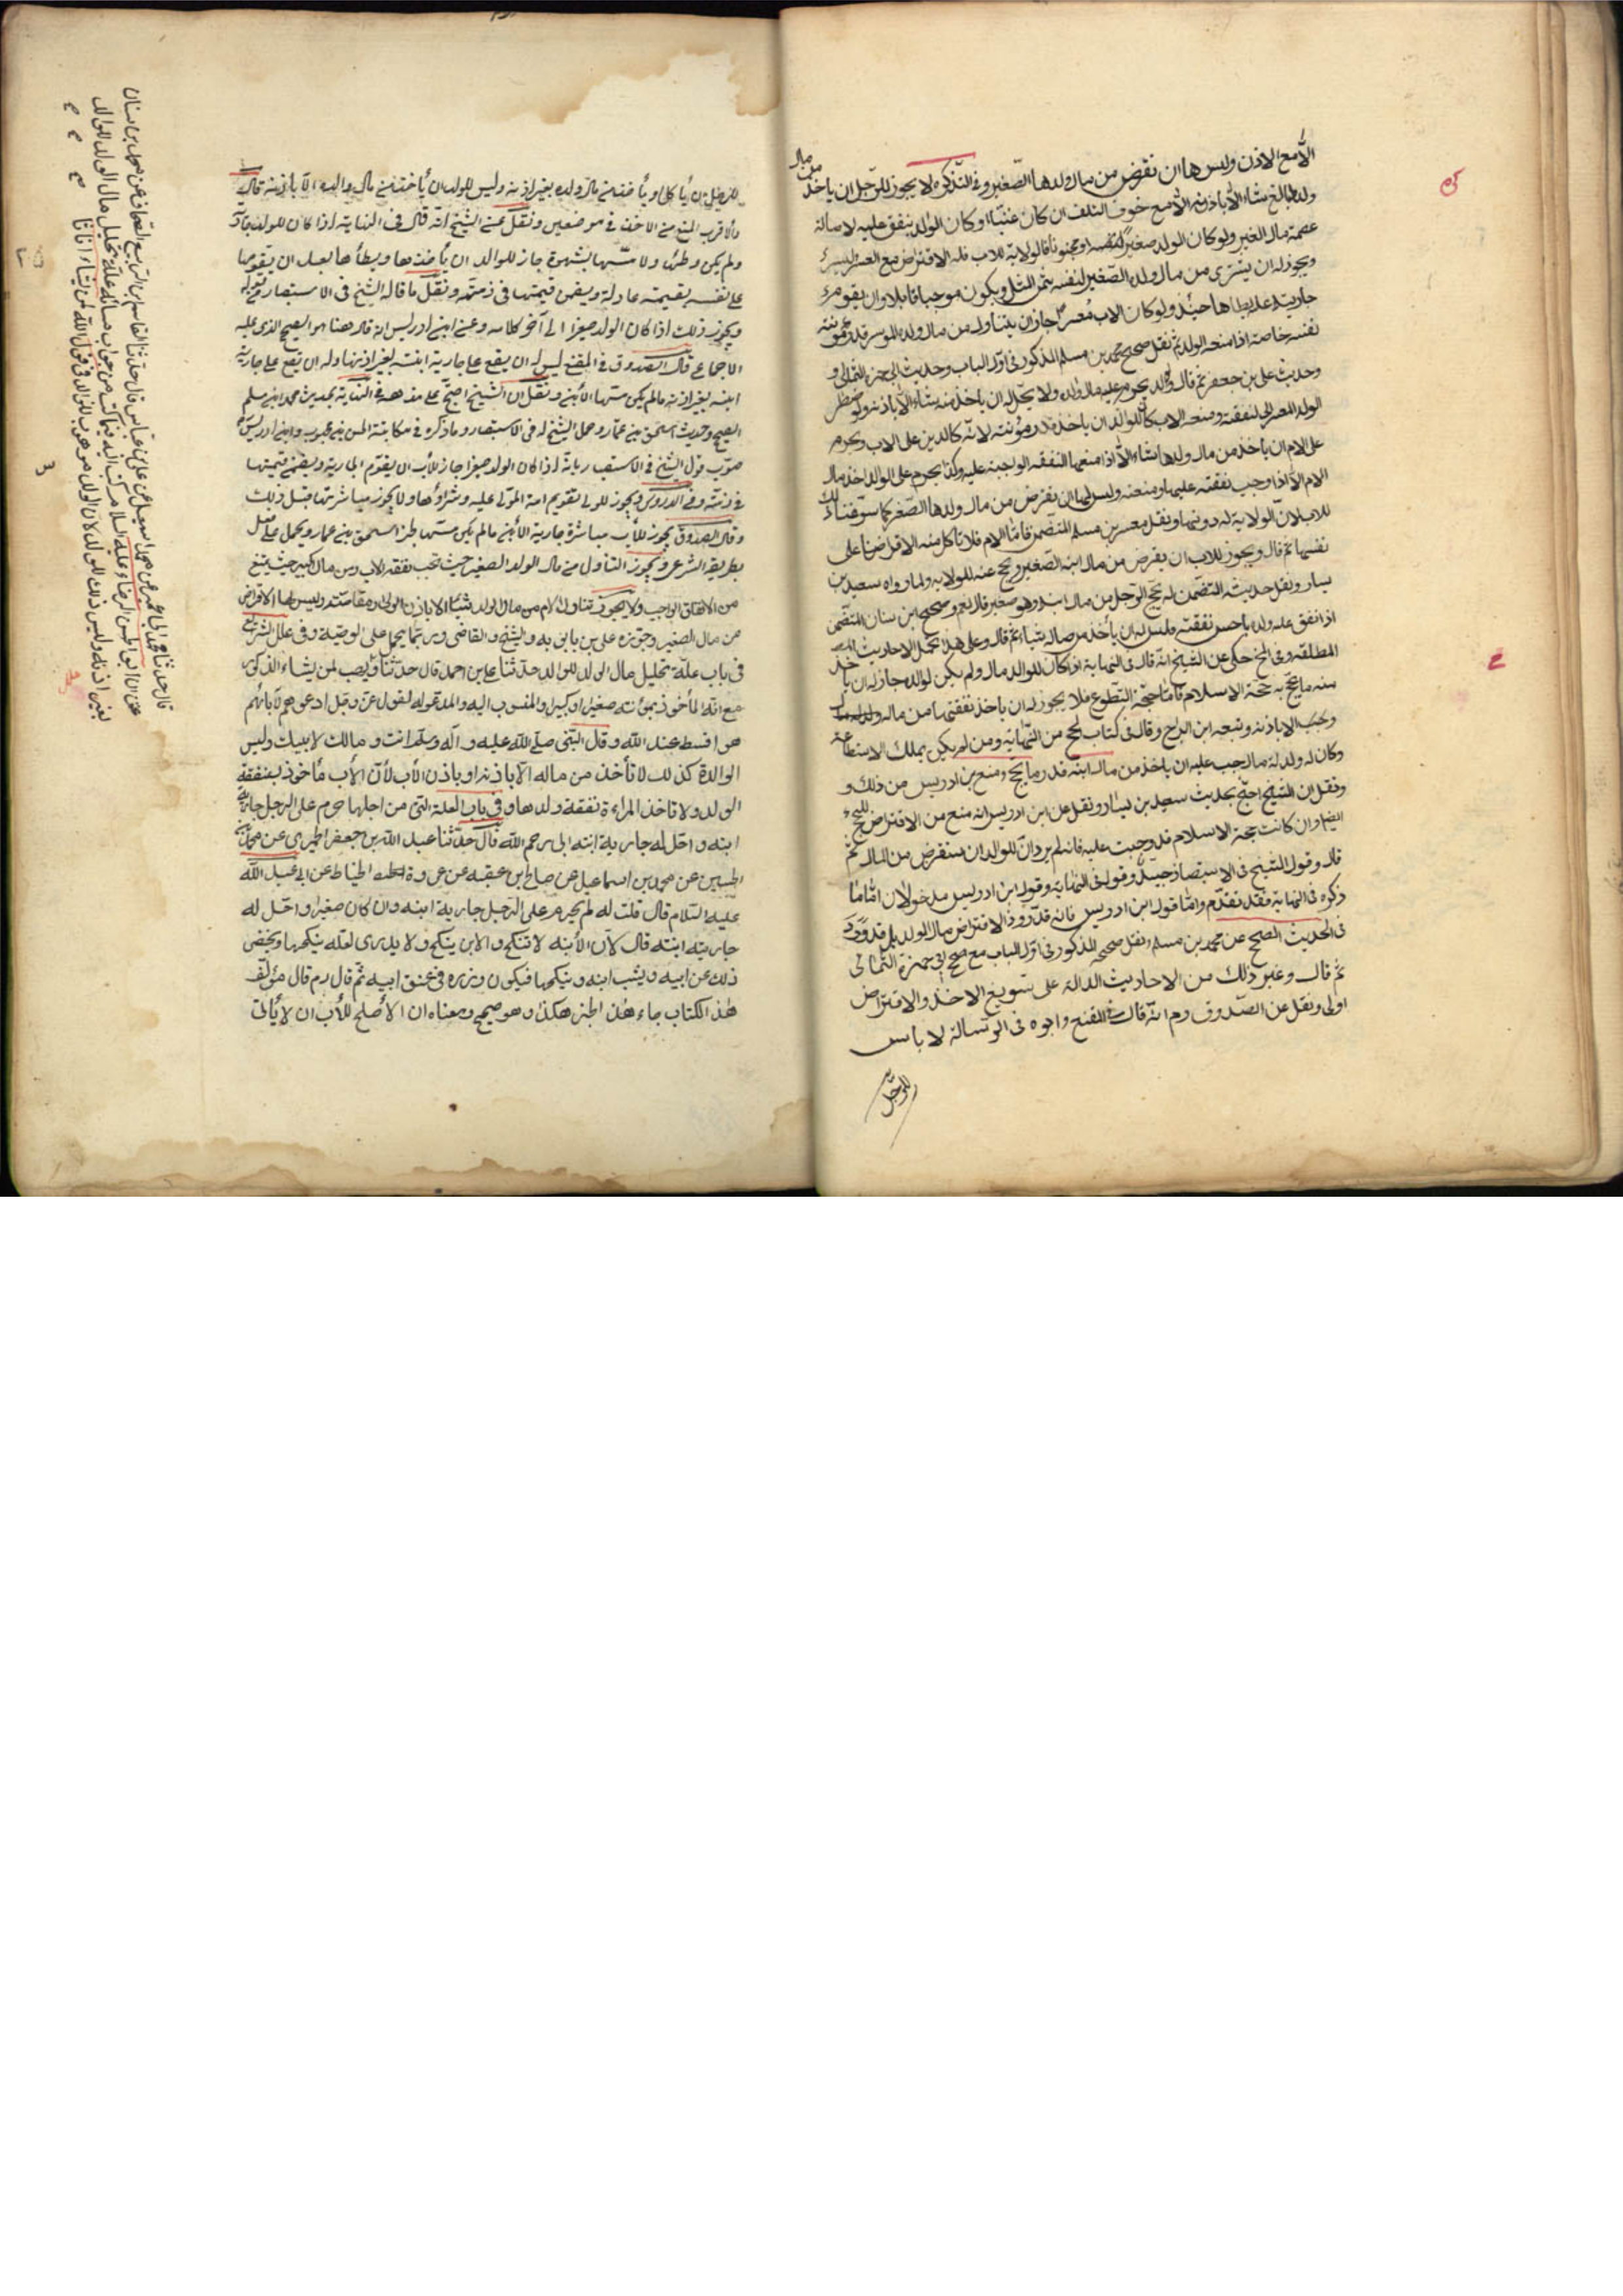 الا مع الاذن وليس لها ان تقرض من مال ولدها الصغير وفى التذكره لا يجوز للرجل ان ياخذ من مال
ولده البالغ شئا الا باذنه الا مع خوف التلف ان كان غنيا او كان الولد ينفق عليه لاصالة
عصمة مال الغير ولو كان الولد صغيرا او مجنونا فالولاية للاب فله الاقتراض مع العسر واليسر
ويجوز له ان يشترى من مال ولده الصغير لنفسه بثمن المثل ويكون موجبا قابلا وان يقوم
جاريته عليه ويطاها حينئذ ولو كان الاب معسرا جاز ان يتناول من مال ولده الموسر قدر مؤنة
نفسه خاصة اذا منعه الولد ثم نقل صحيح محمد بن مسلم المذكور فى اول الباب وحديث ابى حمزة الثمالى و
وحديث على بن جعفر ثم قال الولد يحرم عليه مال والده ولا يحل له ان ياخذ منه شئا الا باذنه ولو اضطر
الولد المعسر الى النفقة ومنعه الاب كان للولد ان ياخذ قدر مؤنته لانه كالدين على الاب ويحرم
على الام ان ياخذ من مال ولدها شئا الا اذا منعها النفقة الواجبة عليه وكذا يحرم على الولد اخذ مال
الام الا اذا وجب نفقته عليها ومنعته وليس لها ان يقرض من مال ولدها الصغير كما سوغنا ذلك
للاب لان الولاية له دونها ونقل محمد بن مسلم المتضمن فاما الام فلا تاكل منه الا قرضا على
نفسها ثم قال ويجوز للاب ان يقرض من مال ابنه الصغير ويحج عنه للولاية ولما رواه سعيد بن
يسار ونقل حديثه المتضمن له يحج الرجل من مال ابنه وهو صغير قال نعم وصحيح ابن سنان المتضمن
اذا انفق عليه ولده باحسن نفقة فليس له ان يأخذ من ماله شيئا ثم قال وعلى هذا تحمل الاحاديث
المطلقة وفى الخ حكى عن الشيخ انه قال فى النهاية اذا كان للولد مال ولم يكن لوالده جاز له ان ياخذ
منه ما يحج به حجة الاسلام فاما حجة التطوع فلا يجوز له ان ياخذ نفقتها من ماله
الا باذنه وتبعه ابن البراج وقال فى كتاب الحج من النهاية ومن لم يكن يملك الاستطاعة
وكان له ولد له مال وجب عليه ان ياخذ من مال ابنه قدر ما يحج ومنع بن ادريس من ذلك و
ونقل ان الشيخ احتج بحديث سعيد بن يسار ونقل عن ابن ادريس انه منع من الاقتراض للحج
ايضا وان كانت حجة الاسلام قد وجبت عليه فانه لم يرد ان للوالد ان يستقرض من المال ثم
قال وقول الشيخ فى الاستبصار جيد وقوله فى النهاية وقول ابن ادريس مدخولان اما ما
ذكره فى النهاية فقد تقدم واما قول ابن ادريس فانه قد ورد الاقتراض مال الولد بل قد ورد
فى الحديث الصحيح عن محمد بن مسلم ونقل صحيحه المذكور فى اول الباب مع صحيح ابى حمزة الثمالى
ثم قال وغير ذلك من الاحاديث الدالة على تسويغ الاخذ والاقتراض
اولى ونقل عن الصدوق رم انه قال فى المقنع وابوه فى الرسالة لا باس
للرجل
للرجل ان يأكل او يأخذ من مال ولده بغير اذنه وليس للولد ان يأخذ من مال والده الا باذنه قال
والاقرب المنع من الاخذ فى موضعين ونقل عن الشيخ انه قال فى النهاية اذا كان للولد جارية
ولم يكن وطئها ولا مسها بشهوة جاز للوالد ان يأخذها ويطأها بعد ان يقومها
على نفسه بقيمة عادلة ويضمن قيمتها فى ذمته ونقل ما قاله الشيخ فى الاستبصار من قوله
ويجوز ذلك اذا كان الولد صغيرا الى آخر كلامه وعن ابن ادريس انه قال هذا هو الصحيح الذى عليه
الاجماع قال الصدوق فى المقنع ليس له ان يقع على جارية ابنته بغير اذنها وله ان يقع على جارية
ابنه بغير اذنه ما لم يكن مسها الابن ونقل ان الشيخ احتج على مذهبه فى النهاية بحديث محمد بن مسلم
الصحيح وحديث اسحق بن عمار وحمل الشيخ له فى الاستبصار وما ذكره فى مكاتبة الحسن بن محبوب وابن ادريس
صوب قول الشيخ فى الاستبصار بانه اذا كان الولد صغيرا جاز للأب ان يقوم الجارية ويضمن قيمتها
فى ذمته وفى الدروس ويجوز للولى تقويم امة المولى عليه وشراؤها ولا يجوز مباشرتها قبل ذلك
وقال الصدوق يجوز للأب مباشرة جارية الأبن ما لم يكن مسها لخبر اسحق بن عمار ويحمل على
بطريقه الشرعى ويجوز التناول من مال الولد الصغير حيث تجب نفقة الاب ومن مال الكبير حيث يمتنع
من الانفاق الواجب ولا يجوز تناول الام من مال الولد شيئا الا باذن الولد او مقاصته وليس لها الاقتراض
من مال الصغير وجوزه على بن بابويه والشيخ والقاضى وربما يحمل على الوصية وفى علل الشرايع
فى باب علة تحليل مال الولد للوالد حدثنا على بن احمد قال حدثنا ويهب لمن يشاء الذكور
مع انه المأخوذ بمؤنته صغيرا وكبيرا والمنسوب اليه والمدعو له لقول الله عز وجل ادعوهم لآبائهم
هو اقسط عند الله وقال النبى صلى الله عليه وآله وسلم انت ومالك لابيك وليس
الوالدة كذلك لا تأخذ من ماله الا باذنه او باذن الأب لأن الأب مأخوذ بنفقة
الولد ولا تاخذ المراءة نفقة ولدها وفى باب العلة التى من اجلها حرم على الرجل جارية
ابنه واحل له جارية ابنته ابى رحمه الله قال حدثنا عبد الله بن جعفر الحميرى عن محمد بن
الحسين عن محمد بن اسماعيل عن صالح بن عقبه عن عروة الحناط عن ابى عبد الله
عليه السلام قال قلت له لم يحرم على الرجل جارية ابنه وان كان صغيرا واحل له
جارية ابنته قال لان الأبنه لا تنكح والابن ينكح ولا يدرى لعله ينكحها ويخفى
ذلك عن ابيه ويشب ابنه وينكحها فيكون وزره فى عنق ابيه ثم قال رم قال مؤلف
هذا الكتاب جاء هذا الخبر هكذا وهو صحيح ومعناه ان الأصلح للأب ان لا يأتى
قال حدثنا محمد بن ابى عبد الله عن محمد بن اسمعيل عن على بن عباس قال حدثنا القاسم بن الربيع الصحاف عن محمد بن سنان
عن ان ابو الحسن الرضاء عليه السلام كتب اليه فيما كتب من جواب مسائله علة تحليل مال الولد للوالد
بغير اذنه وليس ذلك للولد لان الولد موهوب للوالد فى قول الله لمن يشاء اناثا